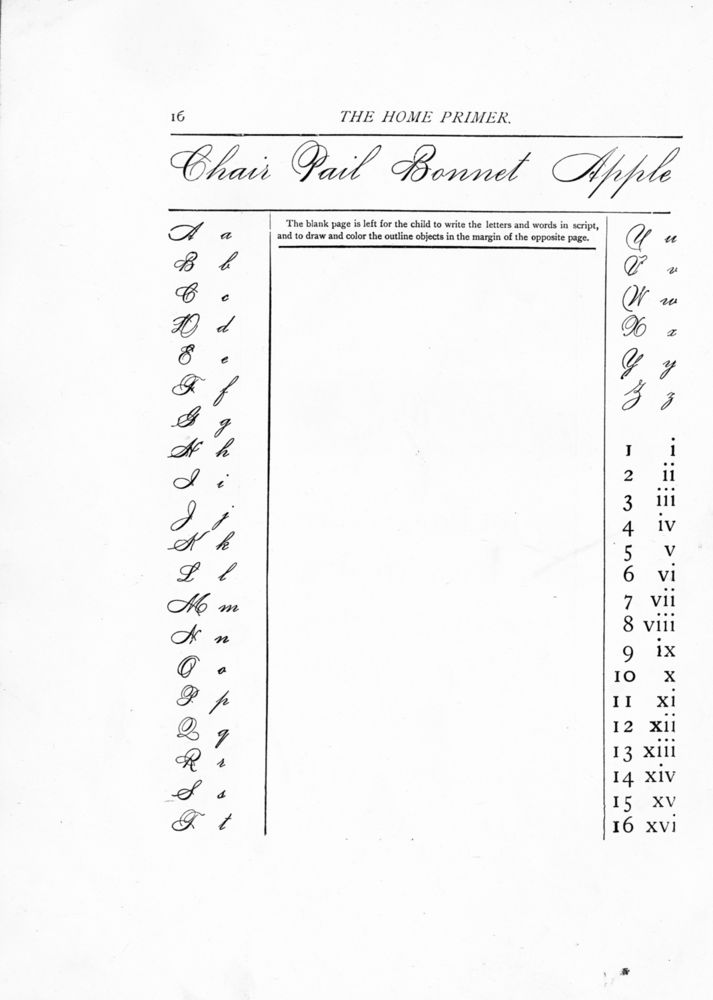 16 THE HOME PRIMER.
Chair Pail Bonnet Apple
A a
B b
C c
D d
E e
F f
G g
H h
I i
J j
K k
L l
M m
N n
O o
P p
Q q
R r
S s
T t
The blank page is left for the child to write the letters and words in script,
and to draw and color the outline objects in the margin of the opposite page.
U u
V v
W w
X x
Y y
Z z
1 i
2 ii
3 iii
4 iv
5 v
6 vi
7 vii
8 viii
9 ix
10 x
11 xi
12 xii
13 xiii
14 xiv
15 xv
16 xvi